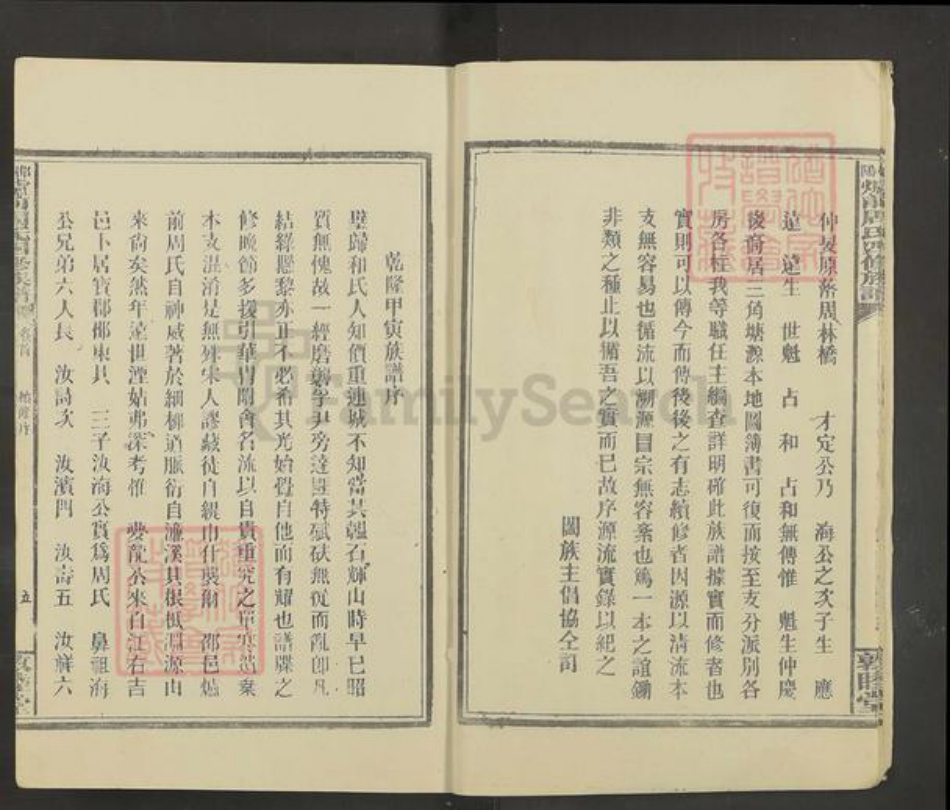 仲 原落周林橋　才定公乃　海公之次子生　應
遠　遠生　世魁　占　和　占和無傳惟　魁生仲慶
後裔居三角塘源本地圖簿書可復而按至支分派別各
房各柱我等職任主編查詳明確此族譜據實而修者也
實則可以傳今而傳後後之有志續修者因源以清流本
支無容易也循流以溯源目宗無容紊也篤一本之誼鋤
非類之種止以循吾之實而已故序源流實錄以紀之
闔族主倡協仝訂
敦睦堂
乾隆甲寅族譜序
璧歸和氏人知價重連城不知當其韞石輝山時早已昭
質無愧故一經磨 孚尹旁達 特珷砆無從而亂卽凡
結綠懸黎亦正不必希其光始覺自他而有耀也譜牒之
修晚節多援引華冑附會名流以自貴重究之 寒 棄
本支混淆是無 宋人謬藏徒自緹巾什襲爾　邵邑
前周氏自神威著於細柳道脈衍自濂溪其根柢淵源由
來尚矣然年遠世湮姑弗深考惟　夔龍公來自江右吉
邑卜居寶郡邵東　三子汝海公實爲周氏　鼻祖海
公兄弟六人長　汝 次　汝濱四　汝壽五　汝祥六
卷首
五
FamilySearch